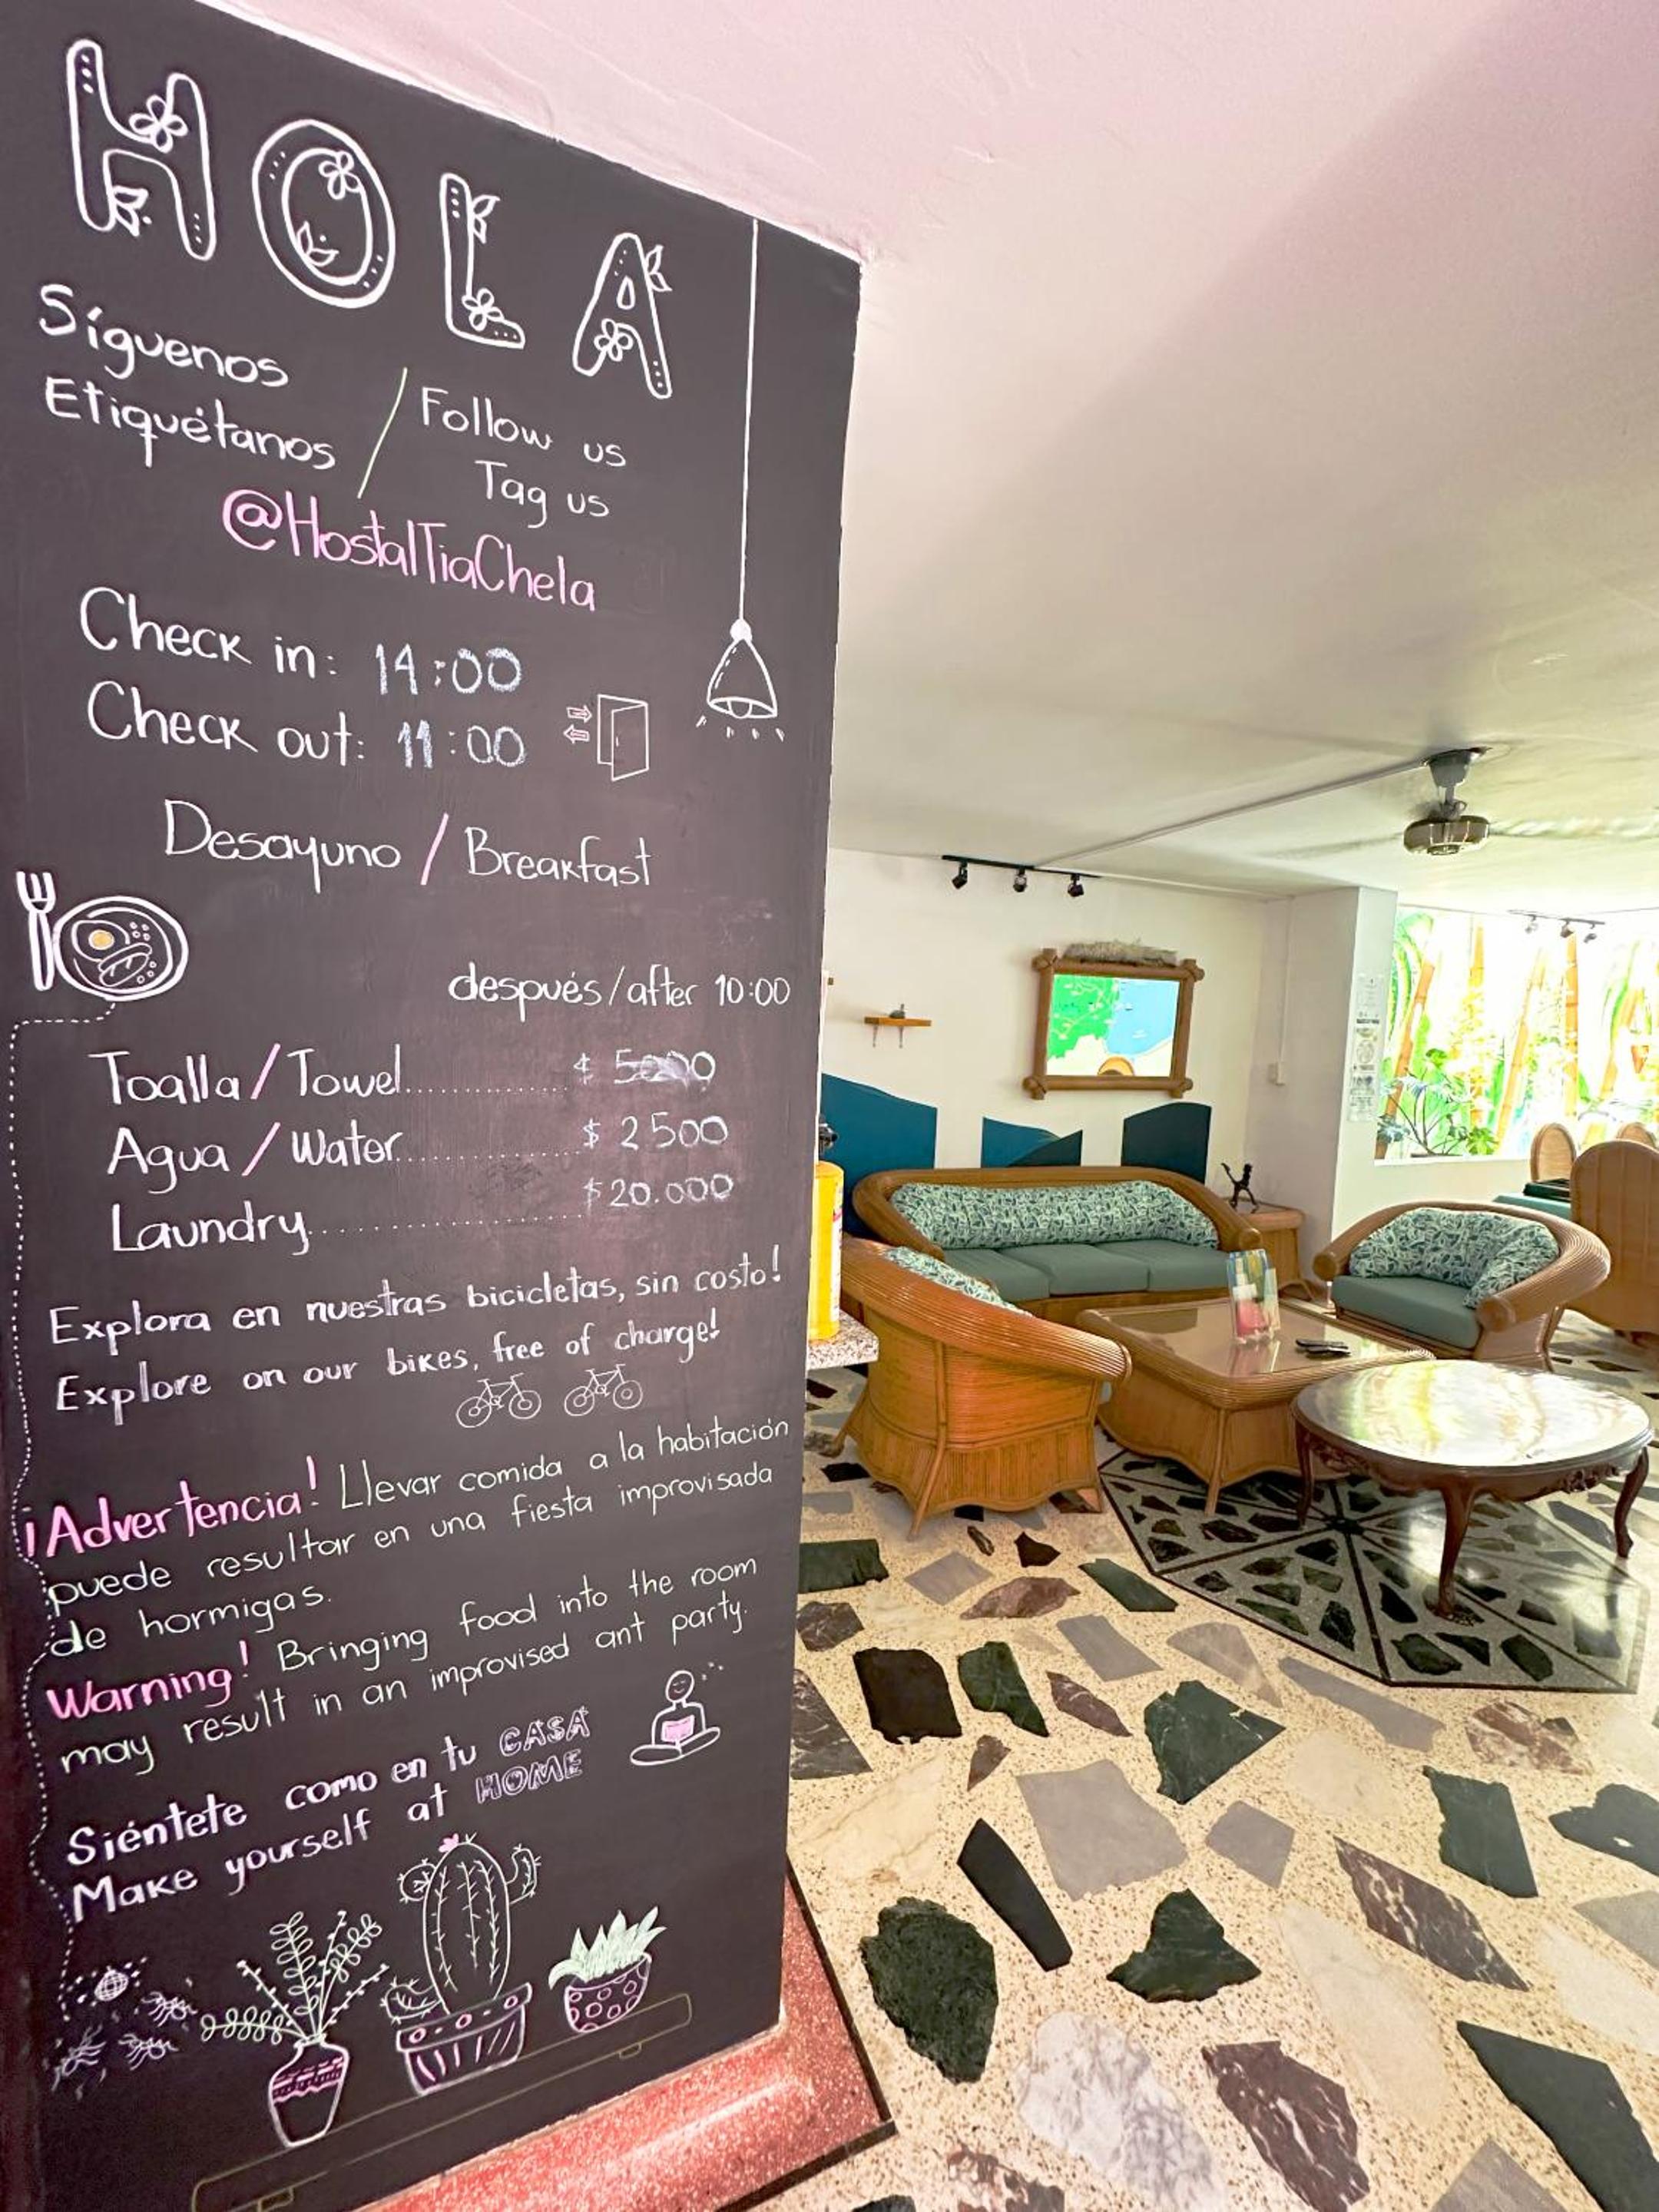 HOLA
Síguenos / Follow us
Etiquétanos Tag us
@HostalTiaChela
Check in: 14:00
Check out: 11:00
Desayuno / Breakfast
después/after 10:00
Toalla / Towel.................. $
Agua / Water.................. $ 2500
Laundry.................. $20.000
Explora en nuestras bicicletas, sin costo!
Explore on our bikes, free of charge!
¡Advertencia! Llevar comida a la habitación
puede resultar en una fiesta improvisada
de hormigas.
Warning! Bringing food into the room
may result in an improvised ant party.
Siéntete como en tu CASA
Make yourself at HOME